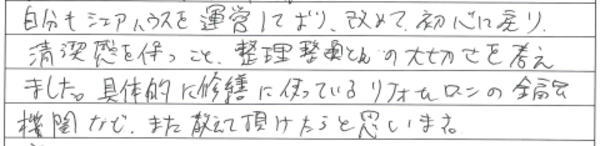 自分もシェアハウスを運営しており、改めて、初心に戻り、
清潔感を保つこと、整理整頓の大切さを考え
ました。具体的に修繕に使っているリフォームローンの金融
機関など、また教えて頂けたらと思います。